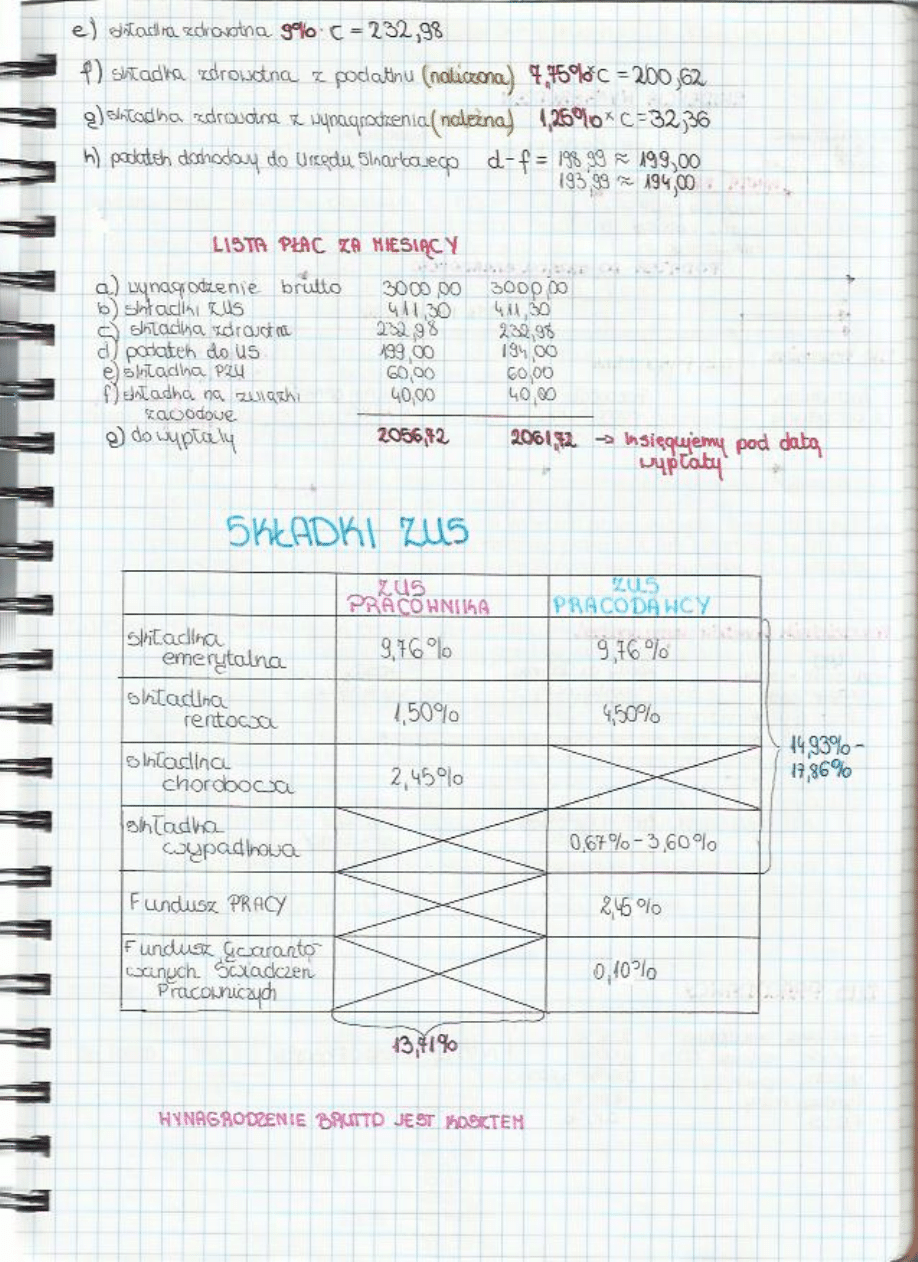 e) składka zdrowotna 9% · C = 232,98
f) składka zdrowotna z podatku (naliczona) 7,75% × C = 200,62
g) składka zdrowotna z wynagrodzenia (należna) 1,25% × C = 32,36
h) podatek dochodowy do Urzędu Skarbowego d-f = 198,99 ≈ 199,00
193,99 ≈ 194,00
LISTA PŁAC ZA MIESIĄCY
a) wynagrodzenie brutto 3000,00 3000,00
b) składki ZUS 411,30 411,30
c) składka zdrowotna 232,98 232,98
d) podatek do US 199,00 194,00
e) składka PZU 60,00 60,00
f) składka na związki 40,00 40,00
zawodowe
g) do wypłaty 2056,72 2061,72 → księgujemy pod datą
wypłaty
SKŁADKI ZUS
ZUS PRACOWNIKA
ZUS PRACODAWCY
składka emerytalna 9,76% 9,76%
składka rentowa 1,50% 4,50%
14,93% -
17,86%
składka chorobowa 2,45%
składka wypadkowa 0,67% - 3,60%
Fundusz PRACY 2,45%
Fundusz Gwaranto
wanych Świadczeń 0,10%
Pracowniczych
13,71%
WYNAGRODZENIE BRUTTO JEST KOSZTEM